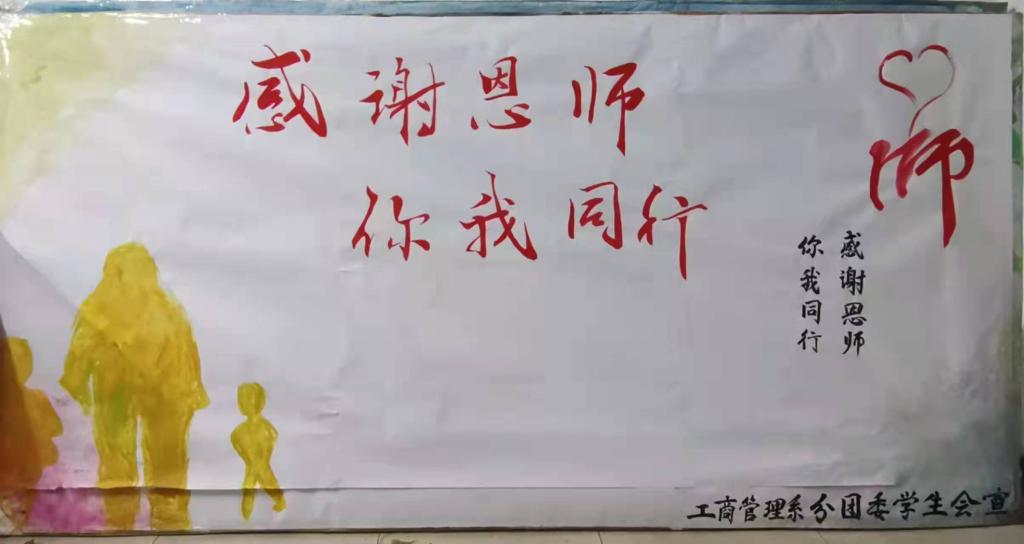 感谢恩师
你我同行
师
感谢恩师
你我同行
工商管理系分团委学生会宣